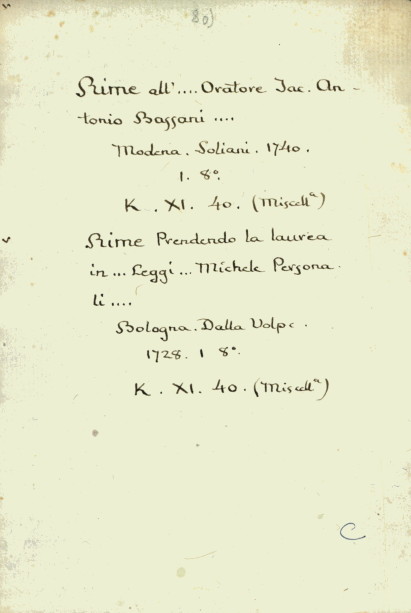 80)
Rime all'.... Oratore Jac. An-
tonio Bassani ....
Modena. Soliani. 1740.
1. 8°.
K. XI. 40. (Miscellª)
Rime Prendendo la laurea
in ... Leggi ... Michele Persona
li ....
Bologna. Dalla Volpe.
1728. 1 8°.
K. XI. 40. (Miscellª)
C